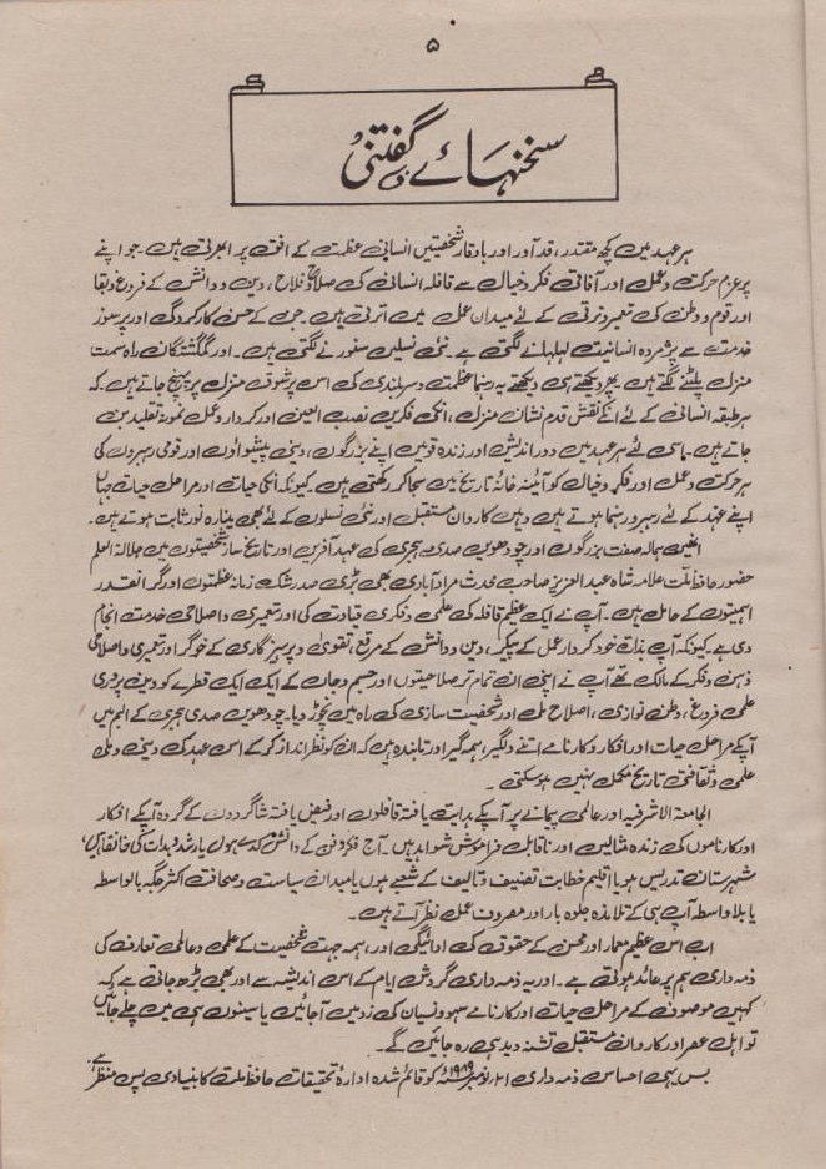 ۵
سخنہائے گفتنی
ہر عہد میں کچھ مقتدر، قد آور اور باوقار شخصیتیں انسانی عظمت کے افق پر ابھرتی ہیں۔ جو اپنے
پر عزم حرکت و عمل اور آفاقی فکر و خیال سے قافلہ انسانی کی صلاح و فلاح، دین و دانش کے فروغ و بقا
اور قوم و وطن کی تعمیر و ترقی کے لئے میدان عمل میں اترتی ہیں۔ جن کے حسن کارکردگی اور پرسوز
خدمت سے پژمردہ انسانیت لہلہانے لگتی ہے۔ نئی نسلیں سنورنے لگتی ہیں۔ اور گم گشتگان راہ سمت
منزل پلٹنے لگتے ہیں۔ پھر دیکھتے ہی دیکھتے یہ رہنما عظمت و سربلندی کی اس پر شوق منزل پر پہنچ جاتے ہیں۔ کہ
ہر طبقہ انسانی کے لئے انکے نقش قدم نشان منزل، انکی فکریں نصب العین اور کردار و عمل نمونہ تقلید بن
جاتے ہیں۔ اسی لئے ہر عہد میں دور اندیش اور زندہ قومیں اپنے بزرگوں، دینی پیشواؤں اور قومی رہبروں کی
ہر حرکت و عمل اور فکر و خیال کو آئینہ خانۂ تاریخ میں سجا کر رکھتی ہیں۔ کیونکہ انکی حیات اور مراحل حیات جہاں
اپنے عہد کے لئے رہبر و رہنما ہوتے ہیں وہیں کاروان مستقبل اور نئی نسلوں کے لئے بھی مینارہ نور ثابت ہوتے ہیں۔
انھیں ہمالہ صفت بزرگوں اور چودھویں صدی ہجری کی عہد آفریں اور تاریخ ساز شخصیتوں میں جلالۃ العلم
حضور حافظ ملت علامہ شاہ عبدالعزیز صاحب محدث مرادآبادی بھی بڑی صد رشک زمانہ عظمتوں اور گرانقدر
اہمیتوں کے حامل ہیں۔ آپ نے ایک عظیم قافلہ کی علمی و فکری قیادت کی اور تعمیری و اصلاحی خدمت انجام
دی ہے۔ کیونکہ آپ بذات خود کردار عمل کے پیکر، دین و دانش کے مرقع تقویٰ و پرہیزگاری کے خوگر اور تعمیری و اصلاحی
ذہن و فکر کے مالک تھے آپ نے اپنی ان تمام تر صلاحیتوں اور جسم و جان کے ایک ایک قطرے کو دین پروری
علمی فروغ، وطن نوازی، اصلاح ملی اور شخصیت سازی کی راہ میں نچوڑ دیا۔ چودھویں صدی ہجری کے الیم میں
آپکے مراحل حیات اور افکار و کارنامے اتنے دلگیر، ہمہ گیر اور تابندہ ہیں کہ ان کو نظر انداز کر کے اس عہد کی دینی و ملی
علمی و ثقافتی تاریخ مکمل نہیں ہو سکتی۔
الجامعۃ الاشرفیہ اور عالمی پیمانے پر آپکے ہدایت یافتہ قافلوں اور فیض یافتہ شاگردوں کے گروہ آپکے افکار
اور کارناموں کی زندہ مثالیں اور ناقابل فراموش شواہد ہیں۔ آج فکر و فن کے دانش کدے ہوں یا رشد و ہدایت کی خانقاہیں،
شہرستان تدریس ہو یا اقلیم خطابت تصنیف و تالیف کے شعبے ہوں یا میدان سیاست و صحافت اکثر جگہ بالواسطہ
یا بلا واسطہ آپ ہی کے تلامذہ جلوہ بار اور مصروف عمل نظر آتے ہیں۔
اب اس عظیم معمار اور محسن کے حقوق کی ادائیگی اور ہمہ جہت شخصیت کے علمی و عالمی تعارف کی
ذمہ داری ہم پر عائد ہوتی ہے۔ اور یہ ذمہ داری گردش ایام کے اس اندیشہ سے اور بھی بڑھ جاتی ہے کہ
کہیں موصوف کے مراحل حیات اور کارنامے سہو و نسیان کی زد میں آجائیں یا سینوں ہی میں چلے جائیں
تو اہل عصر اور کاروان مستقبل تشنہ دید ہی رہ جائیں گے۔
بس یہی احساس ذمہ داری نومبر ۱۹۸۹ء کو قائم شدہ ادارۂ تحقیقات حافظ ملت کا بنیادی پس منظر ہے۔